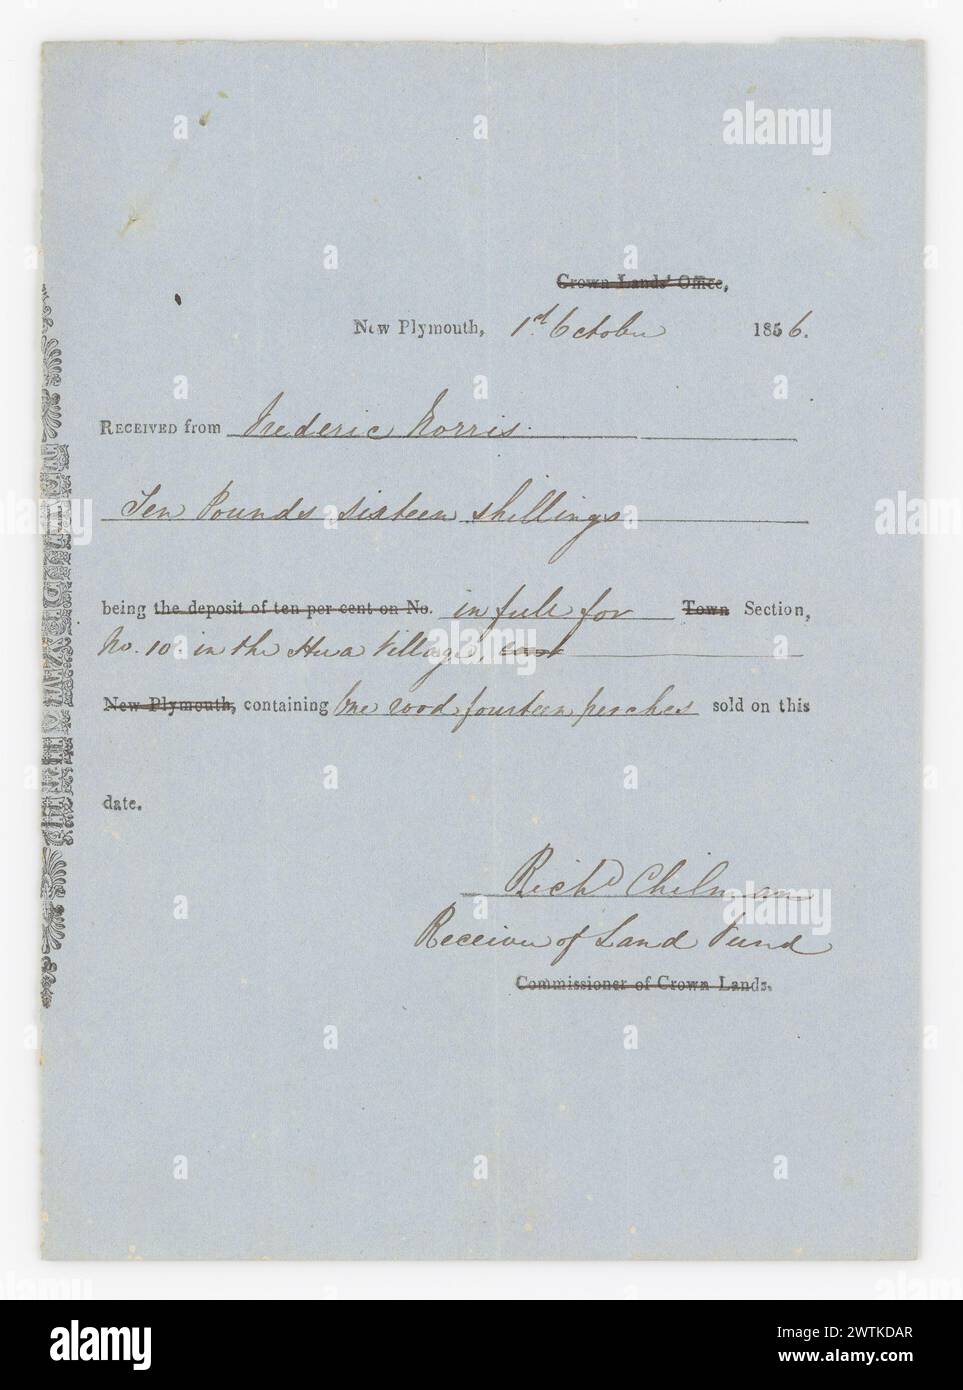 Crown Lands' Office,
New Plymouth, 1st October 1856.
RECEIVED from Frederic Norris
Ten Pounds sixteen shillings
being the deposit of ten per cent on No. in full for Town Section,
No. 10. in the Hua Village,
New Plymouth, containing One rood fourteen perches sold on this
date.
Richd Chilman
Receiver of Land Fund
Commissioner of Crown Lands.
alamy
alamy
Image ID: 2WTKDAR
www.alamy.com